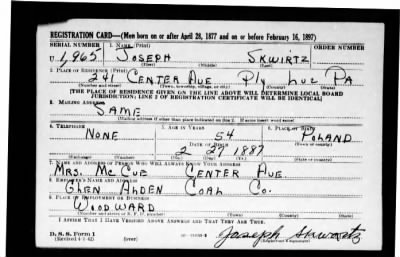 REGISTRATION CARD—(Men born on or after April 28, 1877 and on or before February 16, 1897)
SERIAL NUMBER 1. NAME (Print) ORDER NUMBER
U 1,965 JOSEPH SKWIRTZ
(First) (Middle) (Last)
2. PLACE OF RESIDENCE (Print)
241 CENTER AVE PLY LUZ PA
(Number and street) (Town, township, village, or city) (County) (State)
[THE PLACE OF RESIDENCE GIVEN ON THE LINE ABOVE WILL DETERMINE LOCAL BOARD
JURISDICTION; LINE 2 OF REGISTRATION CERTIFICATE WILL BE IDENTICAL]
3. MAILING ADDRESS
SAME
[Mailing address if other than place indicated on line 2. If same insert word same]
4. TELEPHONE 5. AGE IN YEARS 6. PLACE OF BIRTH
NONE 54 POLAND
DATE OF BIRTH (Town or county)
2 27 1887
(Exchange) (Number) (Mo.) (Day) (Yr.) (State or country)
7. NAME AND ADDRESS OF PERSON WHO WILL ALWAYS KNOW YOUR ADDRESS
MRS. MC CUE CENTER AVE.
8. EMPLOYER'S NAME AND ADDRESS
GLEN ALDEN COAL CO.
9. PLACE OF EMPLOYMENT OR BUSINESS
WOODWARD
(Number and street or R. F. D. number) (Town) (County) (State)
I AFFIRM THAT I HAVE VERIFIED ABOVE ANSWERS AND THAT THEY ARE TRUE.
D. S. S. Form 1
(Revised 4-1-42) (over)
Joseph
(Registrant's signature)